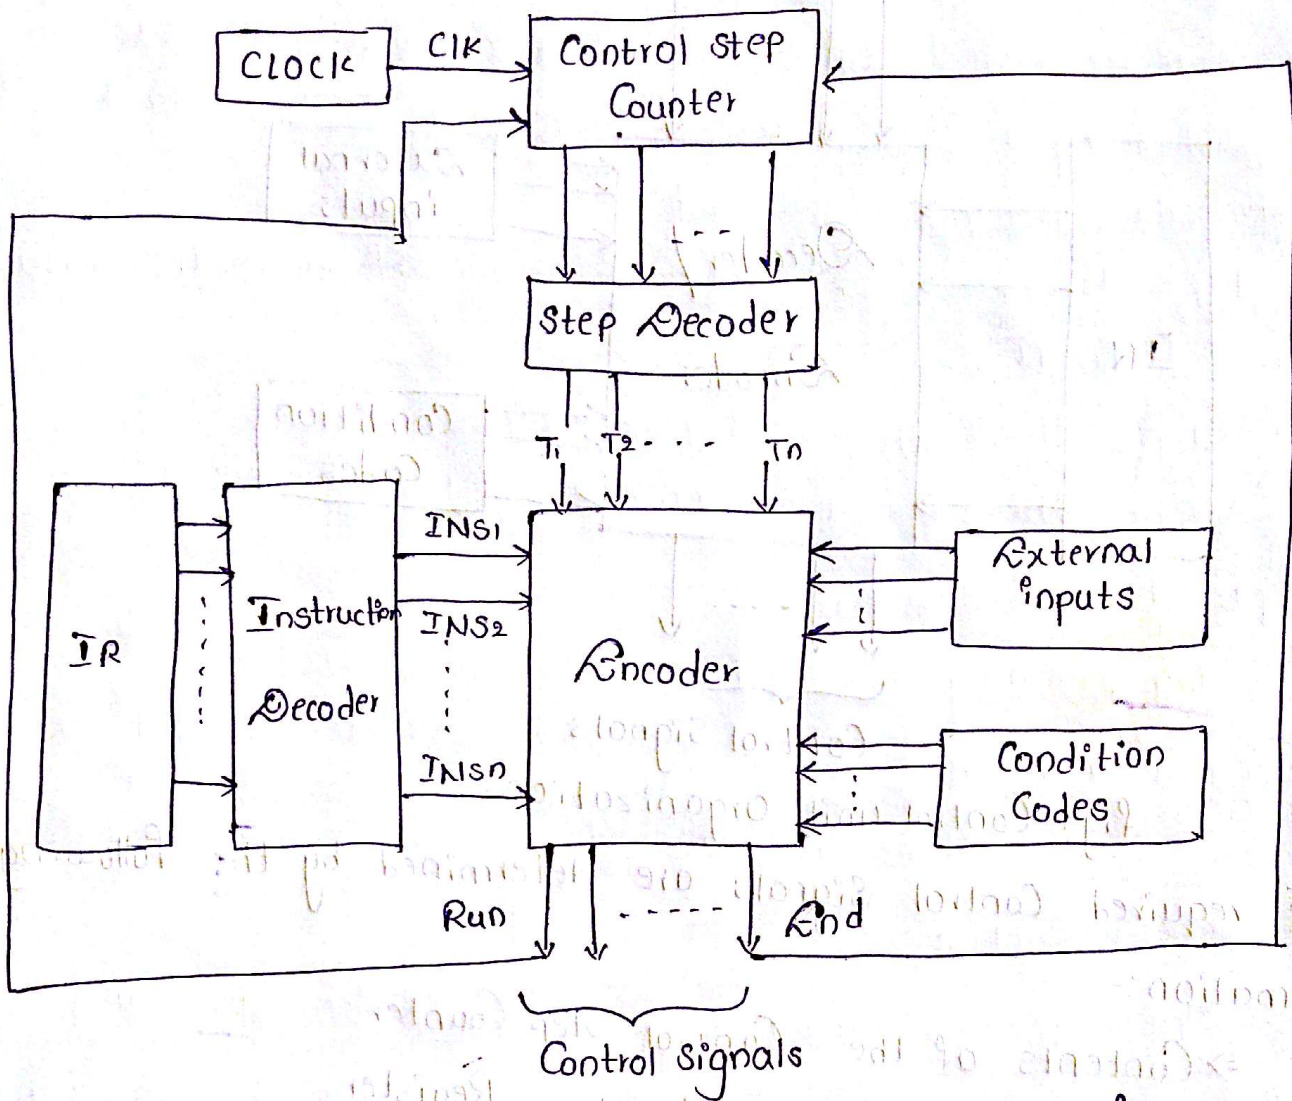 CLOCK
Clk
Control step
Counter
Step Decoder
T1 T2 . . . Tn
IR
Instruction
Decoder
INS1
INS2
INSn
Encoder
External
inputs
Condition
Codes
Run
End
Control signals